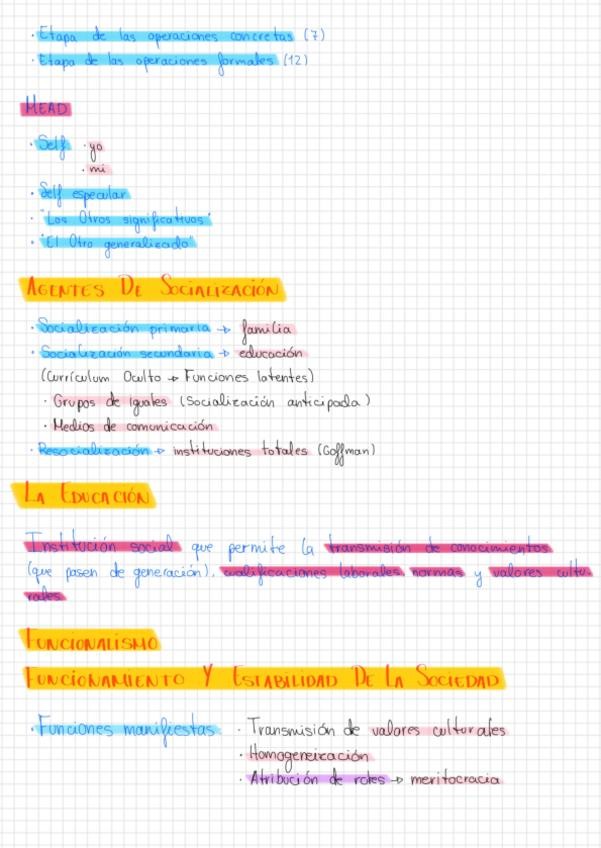 · Etapa de las operaciones concretas (7)
· Etapa de las operaciones formales (12)
MEAD
· Self · yo
· mi
· Self especular
· "Los Otros significativos"
· "El Otro generalizado"
AGENTES DE SOCIALIZACIÓN
· Socialización primaria → familia
· Socialización secundaria → educación
(Currículum Oculto → Funciones latentes)
· Grupos de iguales (Socialización anticipada)
· Medios de comunicación
· Resocialización → instituciones totales (Goffman)
LA EDUCACIÓN
Institución social que permite la transmisión de conocimientos
(que pasen de generación), cualificaciones laborales, normas y valores cultu-
rales
FUNCIONALISMO
FUNCIONAMIENTO Y ESTABILIDAD DE LA SOCIEDAD
· Funciones manifiestas · Transmisión de valores culturales
· Homogeneización
· Atribución de roles → meritocracia